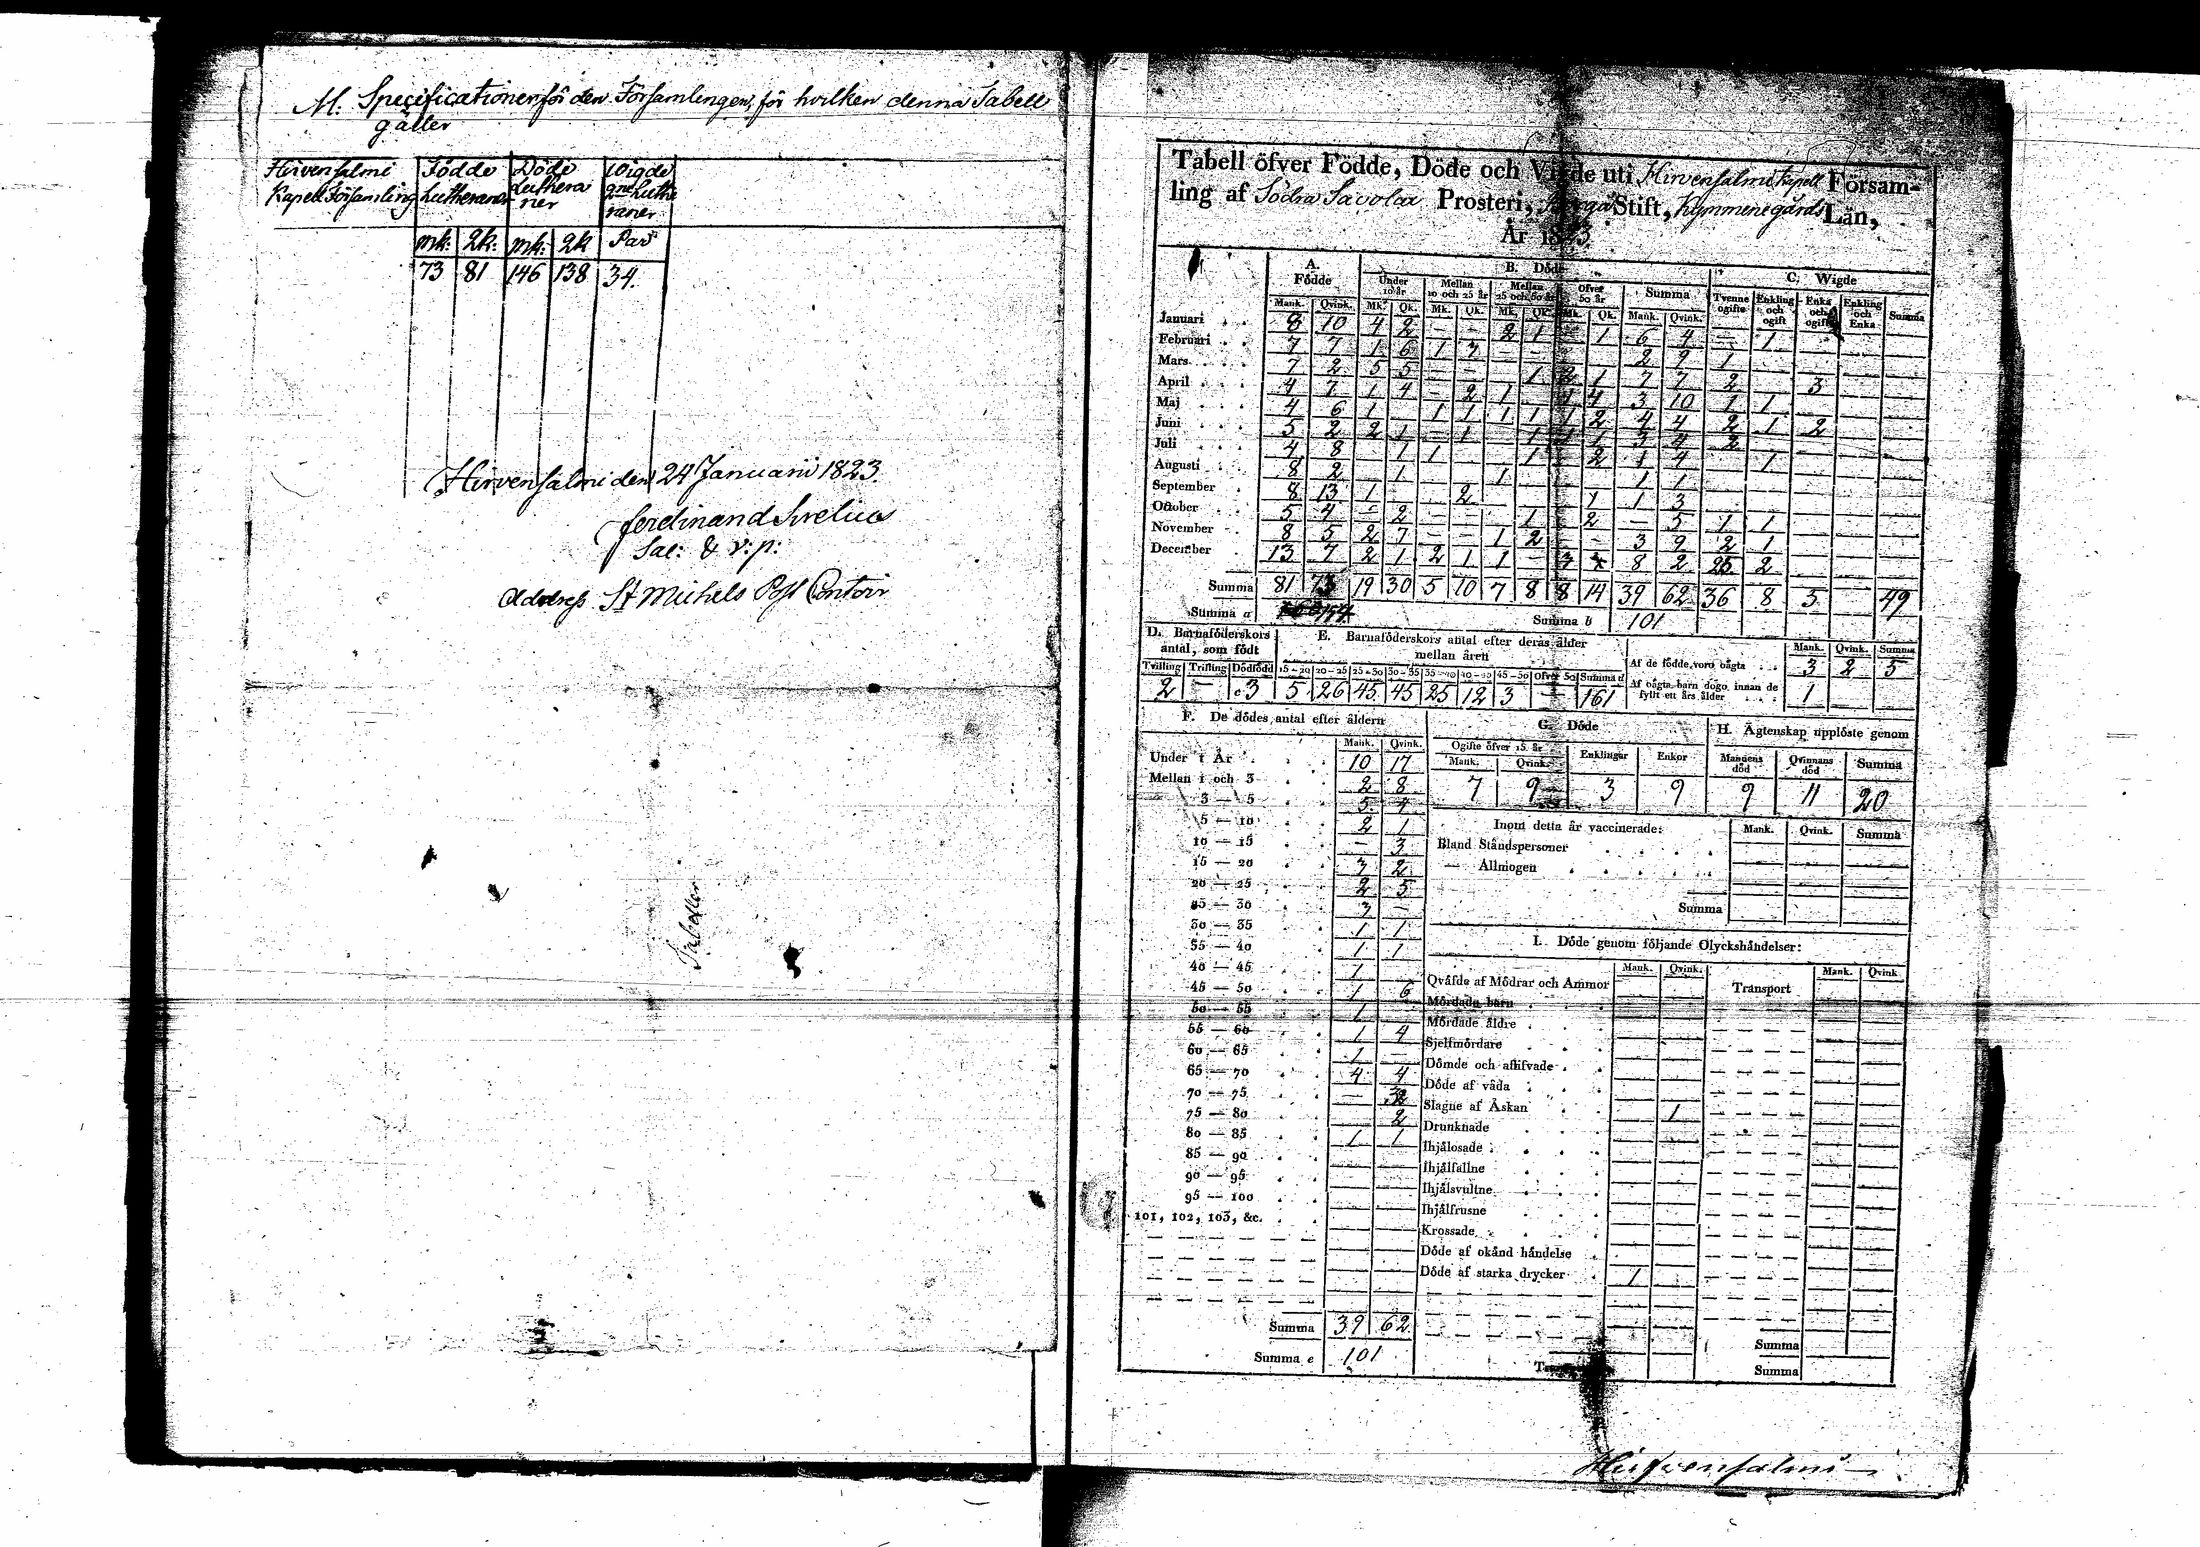 M. Specificationer för den Församlingen, för hvilken denna Tabell
gäller
Hirvensalmi Födde Döde Wigde
Kapell Församling Lutheraner Lutheraner Luthe
raner
mk: 2k: mk: 2k Par
73 81 146 138 34.
Hirvensalmi den 24 Januarii 1823.
Ferdinand Sirelius
Sac: & v: p:
Address St Michels Post Contoir
Tabeller
Tabell öfver Födde, Döde och Vigde uti Hirvensalmi Kapell Försam-
ling af Södra Savolax Prosteri, Stift, Kymmenegårds Län,
År 1823
A. Födde B. Döde C. Wigde
Under 10 år Mellan 10 och 25 år Mellan 25 och 50 år Öfver 50 år Summa Tvenne ogifte Enkling och ogift Enka och ogift Enkling och Enka Summa
Mank. Qvink. Mk. Qk. Mk. Qk. Mk. Qk. Mk. Qk. Mank. Qvink.
Januari 8 10 4 2 — — 2 1 — 1 6 4 — 1
Februari 7 7 1 6 1 3 — — — — 2 9 1
Mars 7 2 5 5 — — — 1 2 1 7 7 2 3
April 4 7 1 4 — 2 1 — 1 4 3 10 1 1
Maj 4 6 1 1 1 1 1 1 2 4 4 2 1 2
Juni 5 2 2 1 — 1 — 1 1 1 3 4 2
Juli 4 8 1 1 1 2 1 4 1
Augusti 8 2 1 1 1 1
September 8 13 1 2 1 1 3
Oktober 5 4 — 2 — — 1 2 — 5 1 1
November 8 5 2 7 — — 1 2 — — 3 9 2 1
December 13 7 2 1 2 1 1 — 8 2 25 2
Summa 81 73 19 30 5 10 7 8 8 14 39 62 36 8 3 49
Summa a 154 Summa b 101
D. Barnaföderskors antal, som födt
Tvilling Trilling Dödfödd
2 — 3
E. Barnaföderskors antal efter deras ålder
mellan åren
15—20 20—25 25—30 30—35 35—40 40—45 45—50 Öfver 50 Summa d
5 26 45 45 25 12 3 — 161
Mank. Qvink. Summa
Af de födde voro oägta 3 2 5
Af oägta barn dogo innan de
fyllt ett års ålder 1
F. De dödes antal efter åldern
Mank. Qvink.
Under 1 År 10 17
Mellan 1 och 3 2 8
3 — 5 5 4
5 — 10 2 1
10 — 15 — 3
15 — 20 3 2
20 — 25 2 5
25 — 30 3 —
30 — 35 1 1
35 — 40 1 1
40 — 45 1
45 — 50 1 6
50 — 55 1
55 — 60 1 4
60 — 65 1 —
65 — 70 4 4
70 — 75 —
75 — 80 2
80 — 85 1 1
85 — 90
90 — 95
95 — 100
101, 102, 103, &c.
Summa 39 62
Summa e 101
G. Döde
Ogifte öfver 15 år Enklingar Enkor
Mank. Qvink.
7 9 3 9
H. Ägtenskap upplöste genom
Mannens död Qvinnans död Summa
9 11 20
Inom detta år vaccinerade: Mank. Qvink. Summa
Bland Ståndspersoner
— Allmogen
Summa
I. Döde genom följande Olyckshändelser:
Mank. Qvink. Mank. Qvink.
Qväfde af Mödrar och Ammor Transport
Mördade barn
Mördade äldre
Sjelfmördare
Dömde och aflifvade
Döde af våda
Slagne af Åskan 1
Drunknade
Ihjälosade
Ihjälfallne
Ihjälsvultne
Ihjälfrusne
Krossade
Döde af okänd händelse
Döde af starka drycker 1
Summa
Summa
Hirfvensalmi